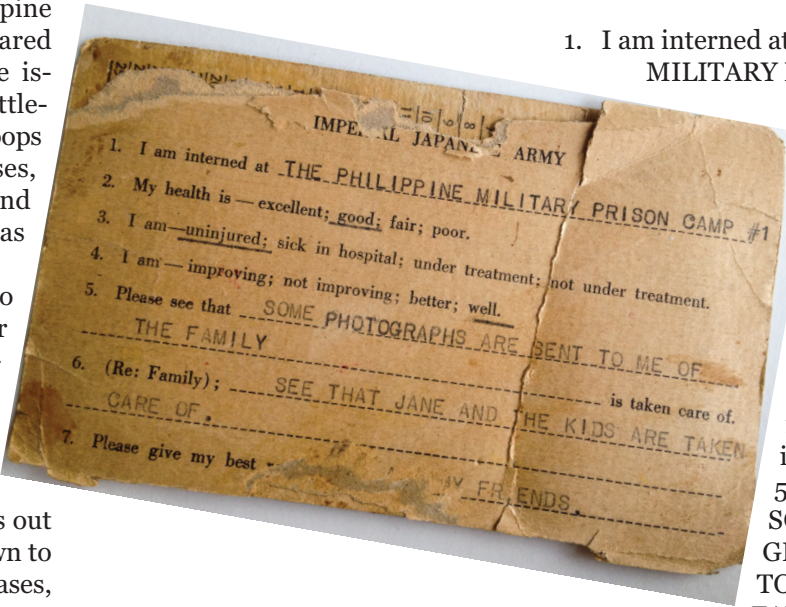 pine
ared
e is-
ttle-
oops
ses,
nd
as
o
r
s out
wn to
ases,
1. I am interned at
MILITARY
IMPE AL JAPAN ARMY
1. I am interned at THE PHILIPPINE MILITARY PRISON CAMP #1
2. My health is — excellent; good; fair; poor.
3. I am—uninjured; sick in hospital; under treatment; not under treatment.
4. I am — improving; not improving; better; well.
5. Please see that SOME PHOTOGRAPHS ARE SENT TO ME OF
THE FAMILY is taken care of.
6. (Re: Family); SEE THAT JANE AND THE KIDS ARE TAKEN
CARE OF.
7. Please give my best MY FRIENDS.